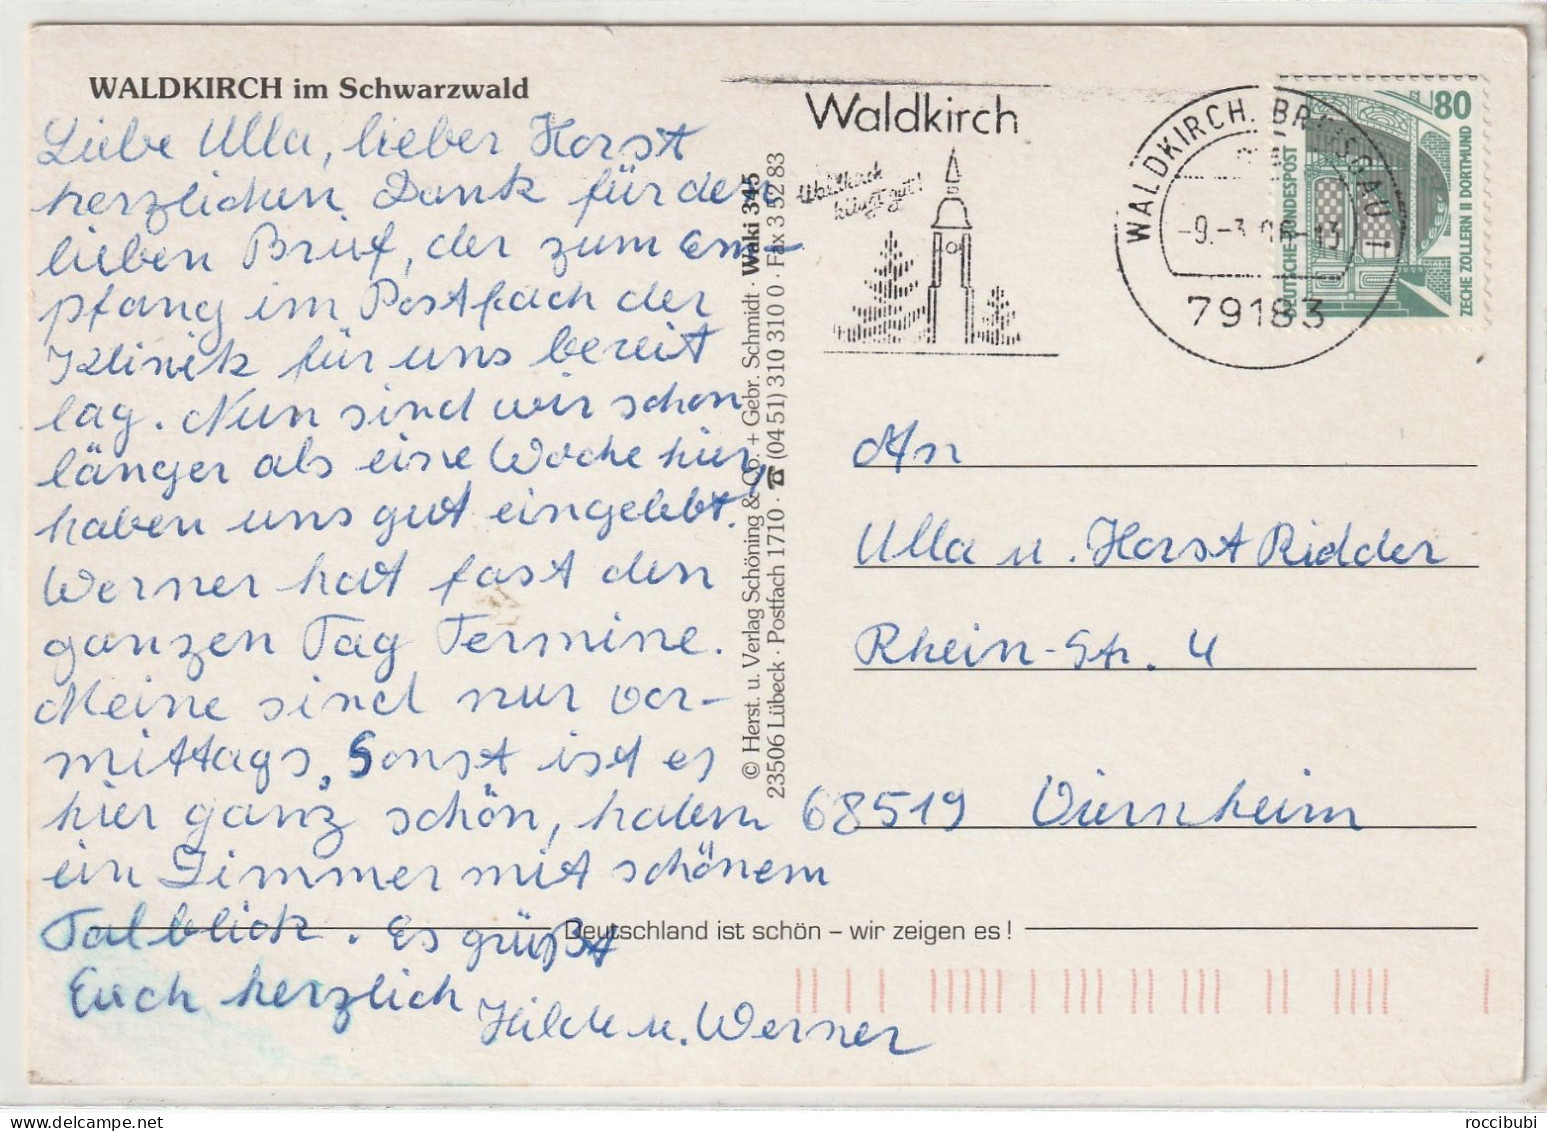 WALDKIRCH im Schwarzwald
Liebe Ulla, lieber Horst
herzlichen Dank für den
lieben Brief, der zum Em-
pfang im Postfach der
Klinik für uns bereit
lag. Nun sind wir schon
länger als eine Woche hier,
haben uns gut eingelebt.
Werner hat fast den
ganzen Tag Termine.
Meine sind nur vor-
mittags. Sonst ist es
hier ganz schön, haben
ein Zimmer mit schönem
Talblick. Es grüßt
Euch herzlich
Hilde u. Werner
© Herst. u. Verlag Schöning & Co. + Gebr. Schmidt · Waki 345
23506 Lübeck · Postfach 1710 · ☎ (04 51) 310 310 0 · Fax 3 52 83
Waldkirch
Waldkirch
klingt gut!
WALDKIRCH, BREISGAU 1
79183
80
DEUTSCHE BUNDESPOST
ZECHE ZOLLERN II DORTMUND
An
Ulla u. Horst Ridder
Rhein-Str. 4
68519 Viernheim
Deutschland ist schön – wir zeigen es !
www.delcampe.net
roccibubi